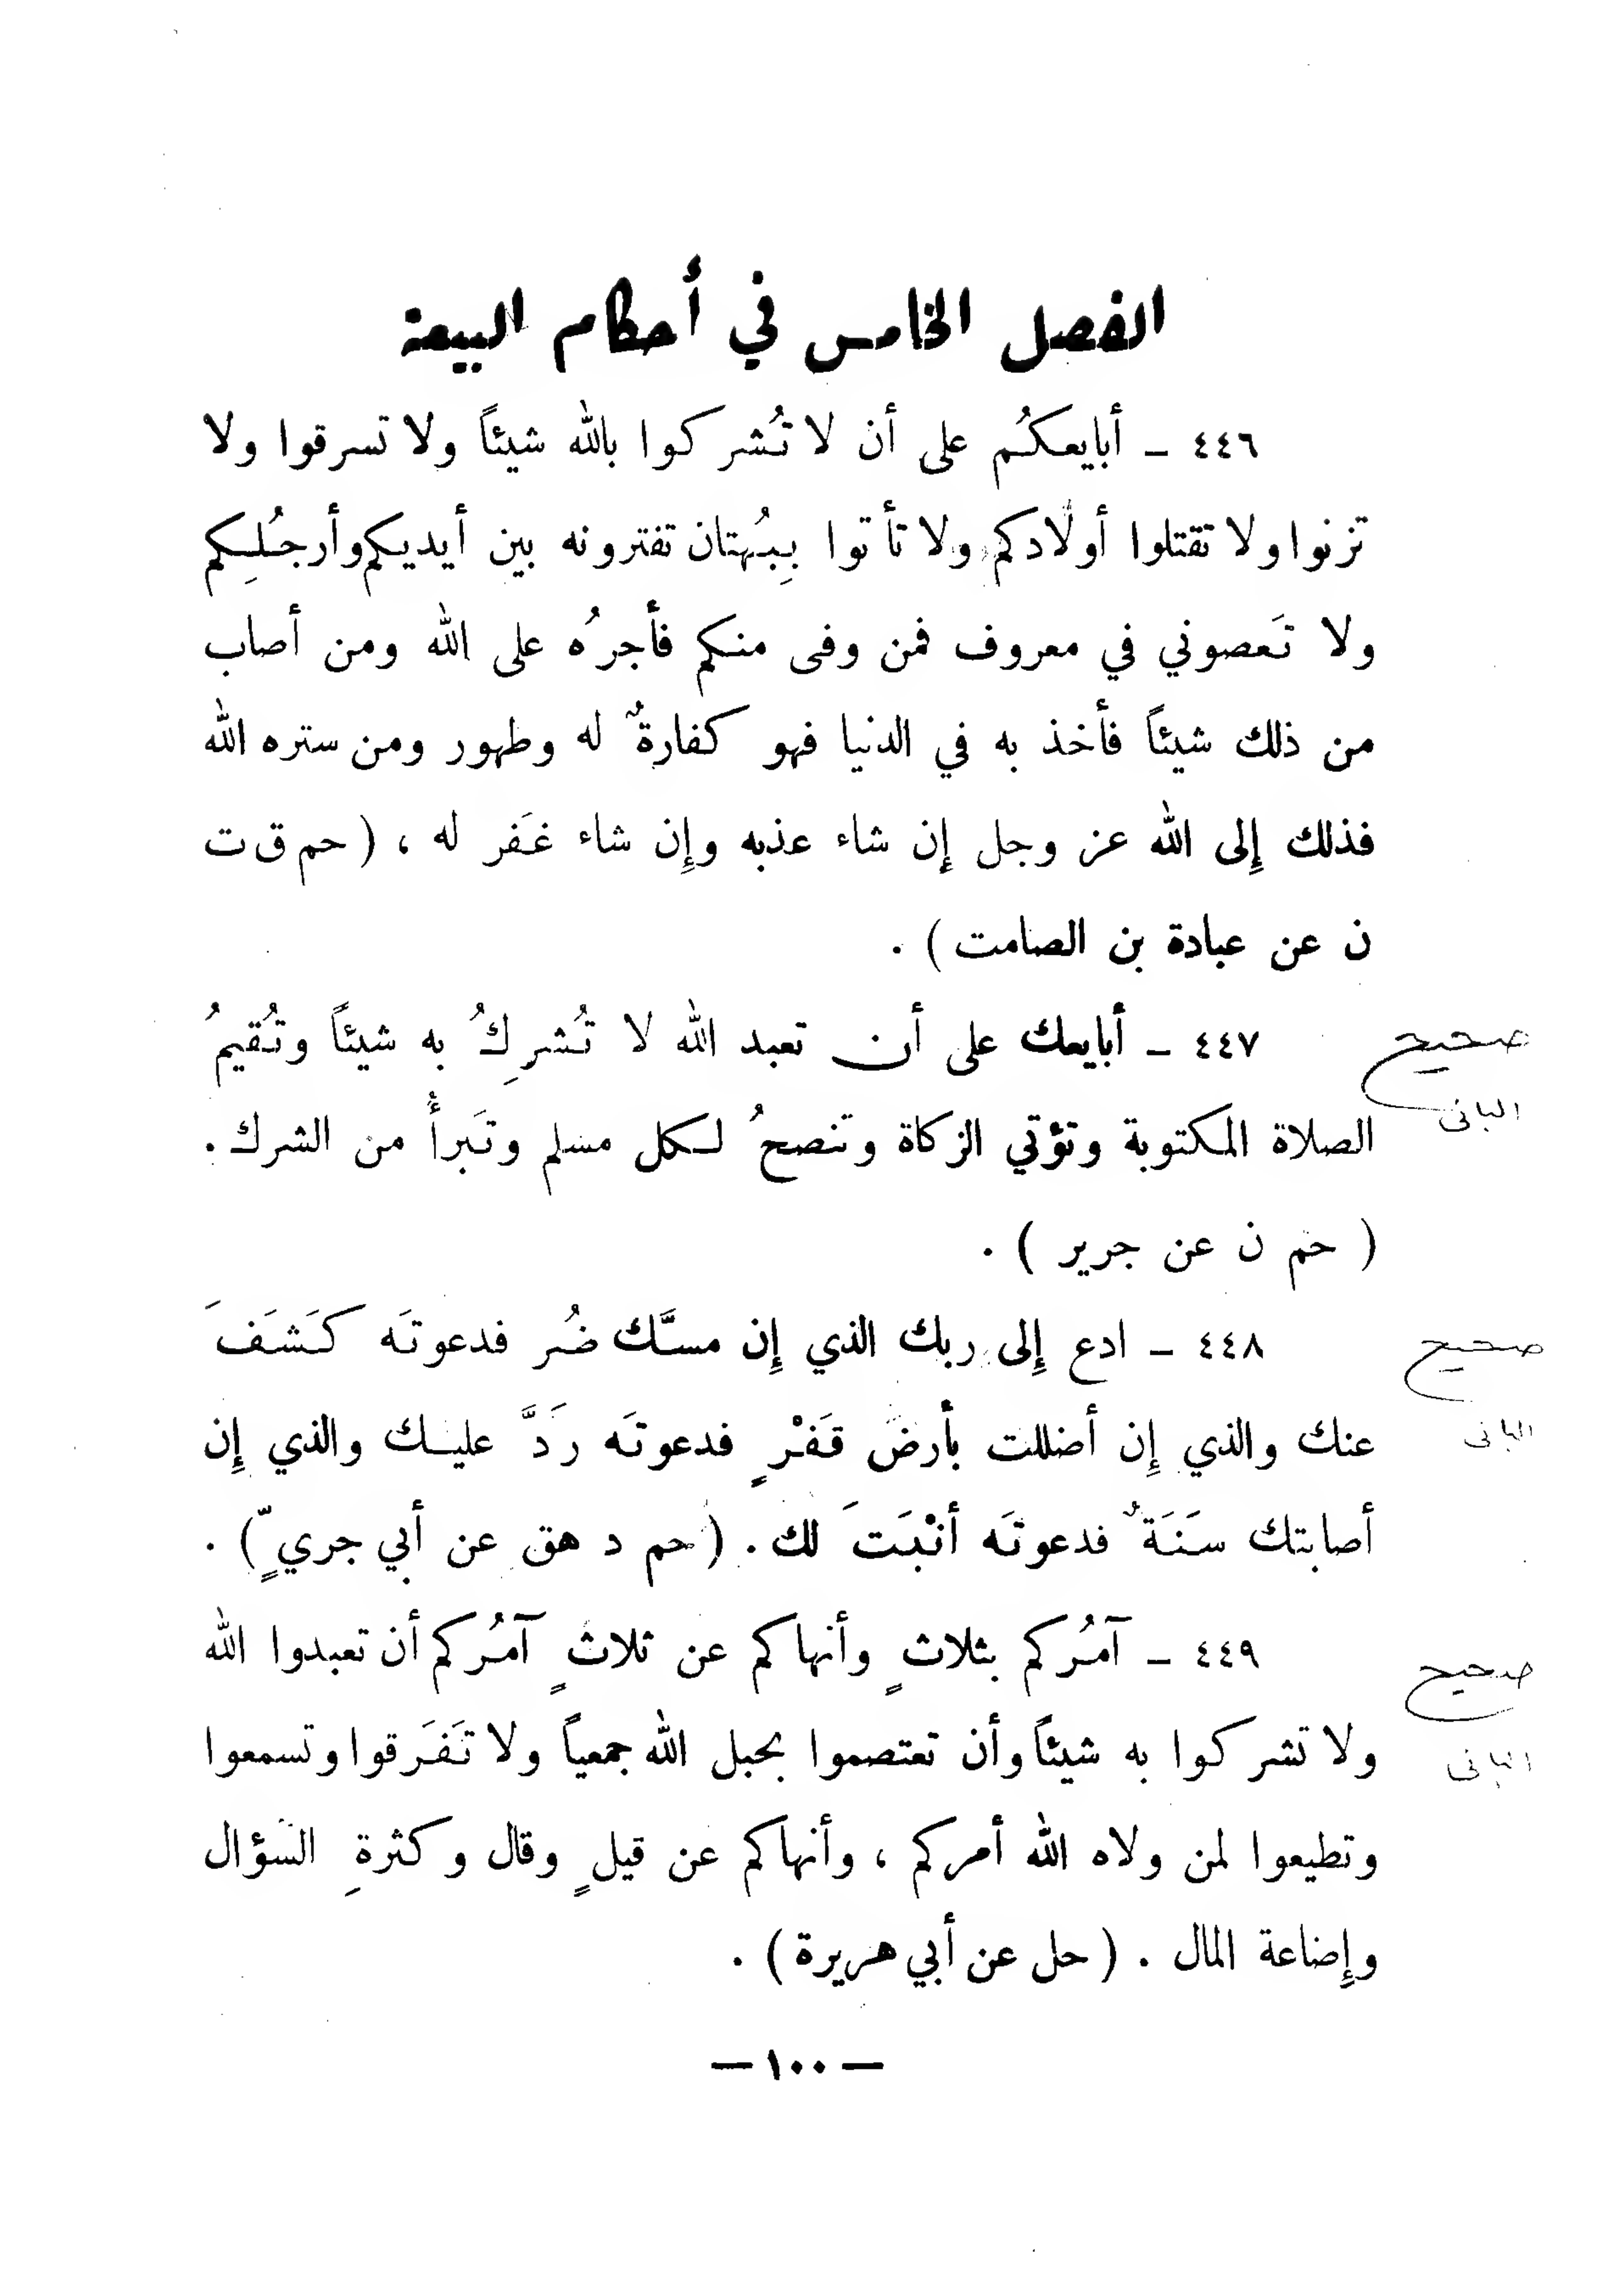 الفصل الخامس في أحكام البيعة
٤٤٦ ـ أبايعكُم على أن لا تُشركوا بالله شيئاً ولا تسرقوا ولا
تزنوا ولا تقتلوا أولادكم ولا تأتوا بِبُهتان تفترونه بين أيديكم وأرجُلِكم
ولا تَعصوني في معروف فمن وفى منكم فأجرُه على الله ومن أصاب
من ذلك شيئاً فأخذ به في الدنيا فهو كفارةٌ له وطهور ومن ستره الله
فذلك إِلى الله عز وجل إِن شاء عذبه وإِن شاء غَفر له ، ( حم ق ت
ن عن عبادة بن الصامت ) .
٤٤٧ ـ أبايعك على أن تعبد الله لا تُشرِكُ به شيئاً وتُقيمُ
صحيح
الصلاة المكتوبة وتؤتي الزكاة وتنصحُ لكل مسلم وتَبرأُ من الشرك .
البانى
( حم ن عن جرير ) .
٤٤٨ ـ ادع إِلى ربك الذي إِن مسَّك ضُر فدعوتَه كَشَفَ
صحيح
عنك والذي إِن أضللت بأرض قَفْرٍ فدعوتَه رَدَّ عليك والذي إِن
البانى
أصابتك سَنَةٌ فدعوتَه أنْبَتَ لك . ( حم د هق عن أبي جريٍّ ) .
٤٤٩ ـ آمُركم بثلاثٍ وأنهاكم عن ثلاثٍ آمُركم أن تعبدوا الله
صحيح
ولا تشركوا به شيئاً وأن تعتصموا بحبل الله جمعياً ولا تَفَرقوا وتسمعوا
البانى
وتطيعوا لمن ولاه الله أمركم ، وأنهاكم عن قيلٍ وقال وكثرةِ السؤال
وإِضاعة المال . ( حل عن أبي هريرة ) .
— ١٠٠ —